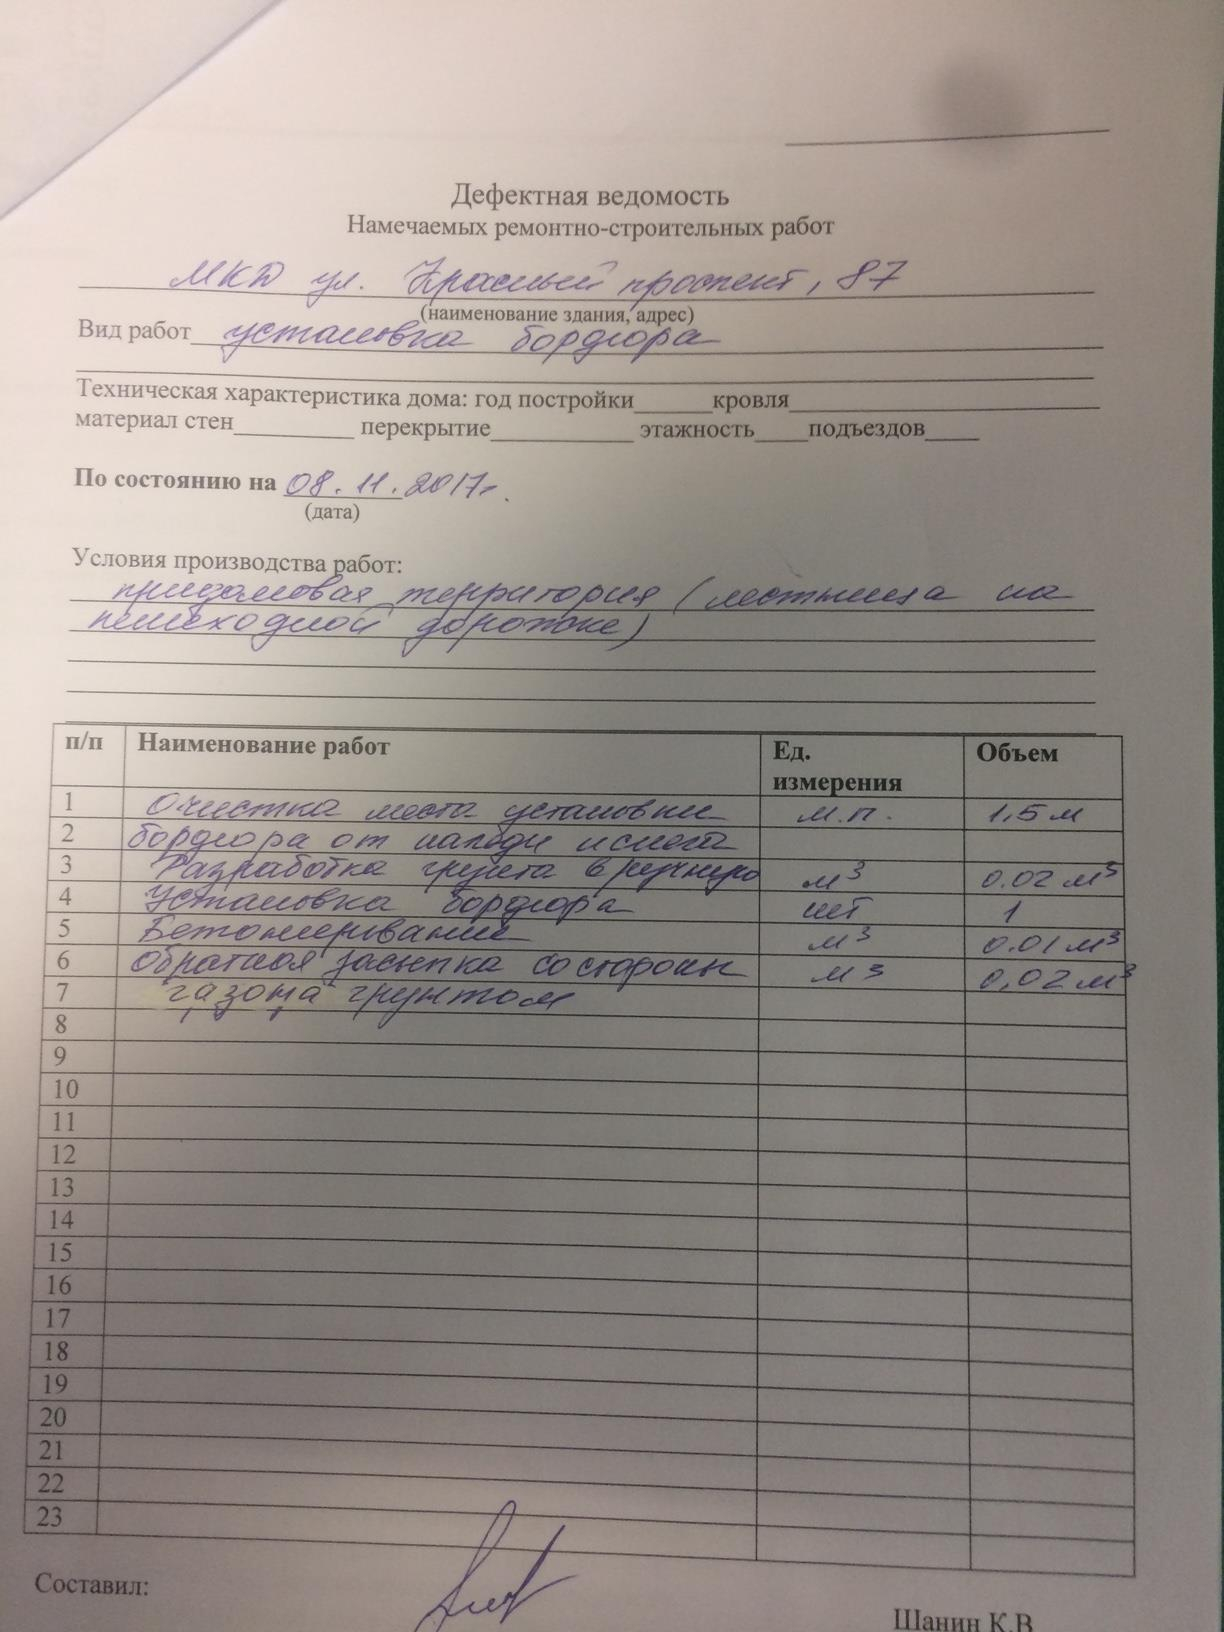 Дефектная ведомость
Намечаемых ремонтно-строительных работ
МКД ул. Красный проспект, 87
(наименование здания, адрес)
Вид работ установка бордюра
Техническая характеристика дома: год постройки______кровля______
материал стен_________ перекрытие__________ этажность____подъездов____
По состоянию на 08.11.2017г.
(дата)
Условия производства работ:
придомовая территория (лестница на
пешеходной дорожке)
п/п Наименование работ Ед. измерения Объем
1 Очистка места установки м.п. 1,5 м
2 бордюра от наледи и снега
3 Разработка грунта вручную м³ 0.02 м³
4 Установка бордюра шт 1
5 Бетонирование м³ 0.01 м³
6 Обратная засыпка со стороны м³ 0,02 м³
7 газона грунтом
8
9
10
11
12
13
14
15
16
17
18
19
20
21
22
23
Составил:
Шанин К.В